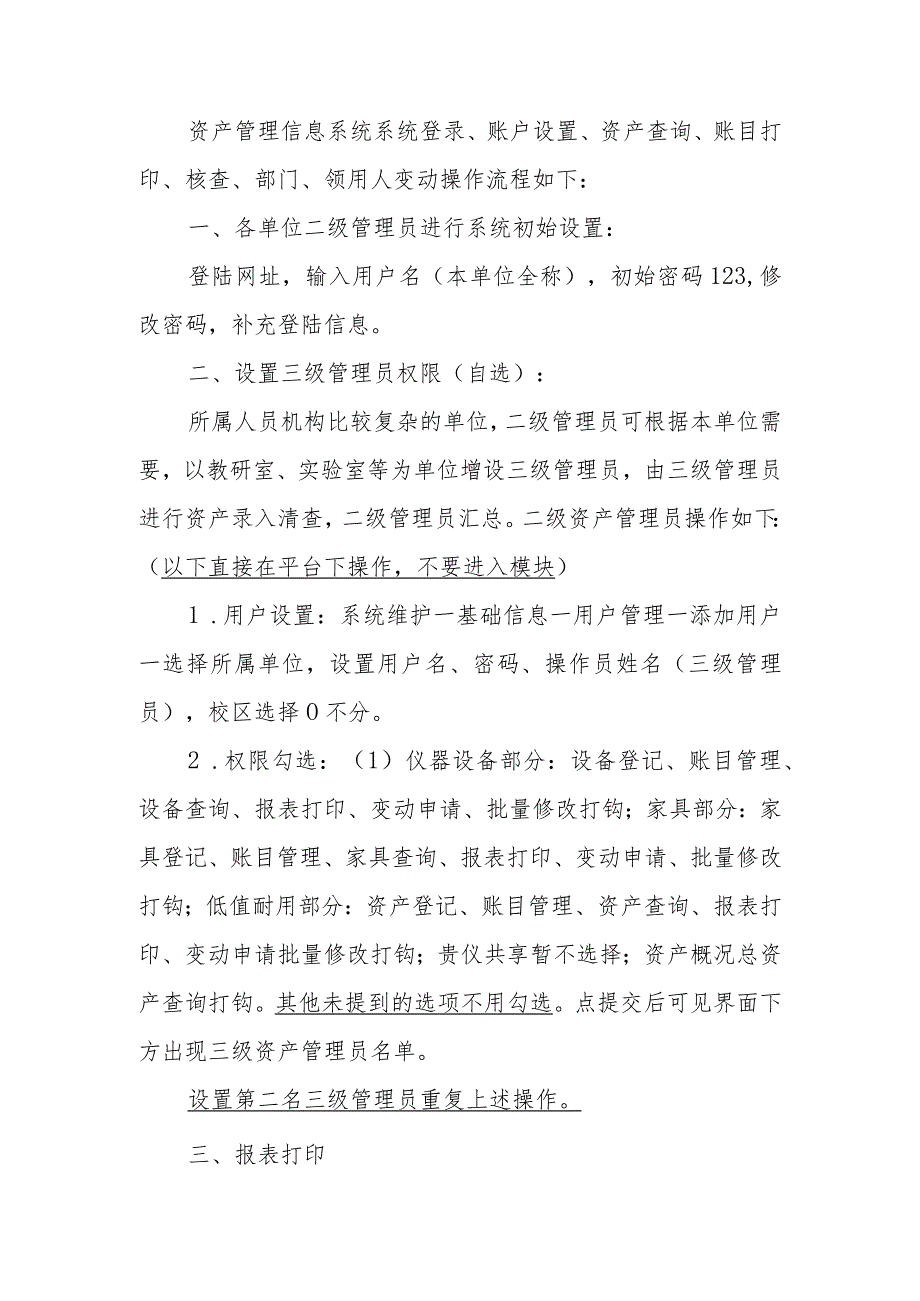 资产管理信息系统系统登录、账户设置、资产查询、账目打
印、核查、部门、领用人变动操作流程如下：
一、各单位二级管理员进行系统初始设置：
登陆网址，输入用户名（本单位全称），初始密码123,修
改密码，补充登陆信息。
二、设置三级管理员权限（自选）：
所属人员机构比较复杂的单位，二级管理员可根据本单位需
要，以教研室、实验室等为单位增设三级管理员，由三级管理员
进行资产录入清查，二级管理员汇总。二级资产管理员操作如下：
（以下直接在平台下操作，不要进入模块）
1 .用户设置：系统维护一基础信息一用户管理一添加用户
一选择所属单位，设置用户名、密码、操作员姓名（三级管理
员），校区选择0不分。
2 .权限勾选：（1）仪器设备部分：设备登记、账目管理、
设备查询、报表打印、变动申请、批量修改打钩；家具部分：家
具登记、账目管理、家具查询、报表打印、变动申请、批量修改
打钩；低值耐用部分：资产登记、账目管理、资产查询、报表打
印、变动申请批量修改打钩；贵仪共享暂不选择；资产概况总资
产查询打钩。其他未提到的选项不用勾选。点提交后可见界面下
方出现三级资产管理员名单。
设置第二名三级管理员重复上述操作。
三、报表打印